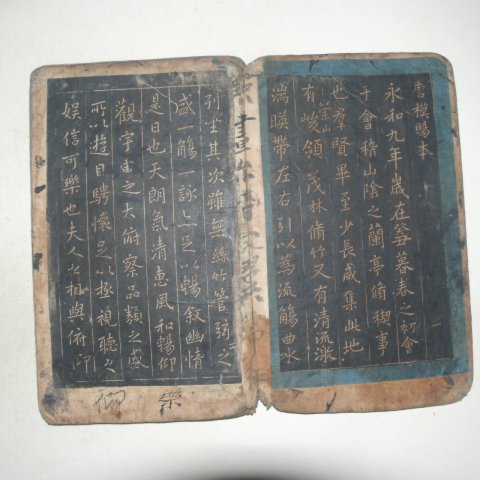 唐模賜本
永和九年歲在癸丑暮春之初會
于會稽山陰之蘭亭脩稧事
也羣賢畢至少長咸集此地
崇山
有峻領茂林脩竹又有清流激
湍暎帶左右引以為流觴曲水
列坐其次雖無絲竹管弦之
盛一觴一詠亦足以暢敘幽情
是日也天朗氣清惠風和暢仰
觀宇宙之大俯察品類之盛
所以遊目騁懷足以極視聽之
娛信可樂也夫人之相與俯仰
樂
仰